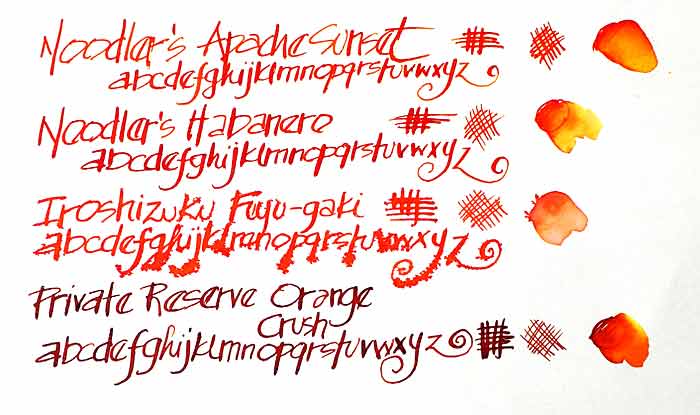 Noodler's Apache Sunset
abcdefghijklmnopqrstuvwxyz
Noodler's Habanero
abcdefghijklmnopqrstuvwxyz
Iroshizuku Fuyu-gaki
abcdefghijklmnopqrstuvwxyz
Private Reserve Orange
Crush
abcdefghijklmnopqrstuvwxyz